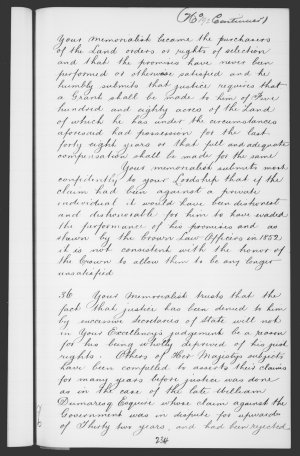 (No 7. Continued)
Your Memorialist became the purchasers
of the Land orders or rights of selection
and that the promises have never been
performed or otherwise satisfied and he
humbly submits that justice requires that
a Grant shall be made to him of Five
hundred and eighty acres of the Land
of which he has under the circumstances
aforesaid had possession for the last
forty eight years or that full and adequate
compensation shall be made for the same
Your memorialist submits most
confidently to your Lordship that if the
claim had been against a private
individual it would have been dishonest
and dishonorable for him to have evaded
the performance of his promises and as
shewn by the Crown Law Officers in 1852
it is not consistent with the honor of
the Crown to allow them to be any longer
unsatisfied
36 Your Memorialist trusts that the
fact that justice has been denied to him
by successive Secretaries of State will not
in Your Excellency's judgement be a reason
for his being wholly deprived of his just
rights. Others of Her Majesty's subjects
have been compelled to assert their claims
for many years before justice was done
as in the case of the late William
Dumaresq Esquire whose claim against the
Government was in dispute for upwards
of Thirty two years, and had been rejected
234